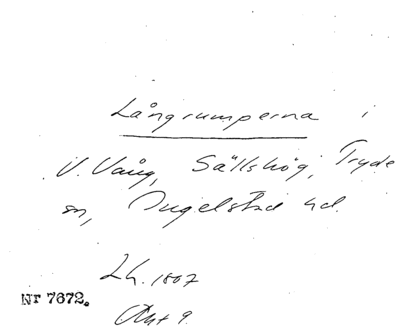 Långrumperna i
V. Vång, Sällshög, Tryde
sn, Ingelstad hd.
Lh. 1807
Akt 9.
Nr 7672.